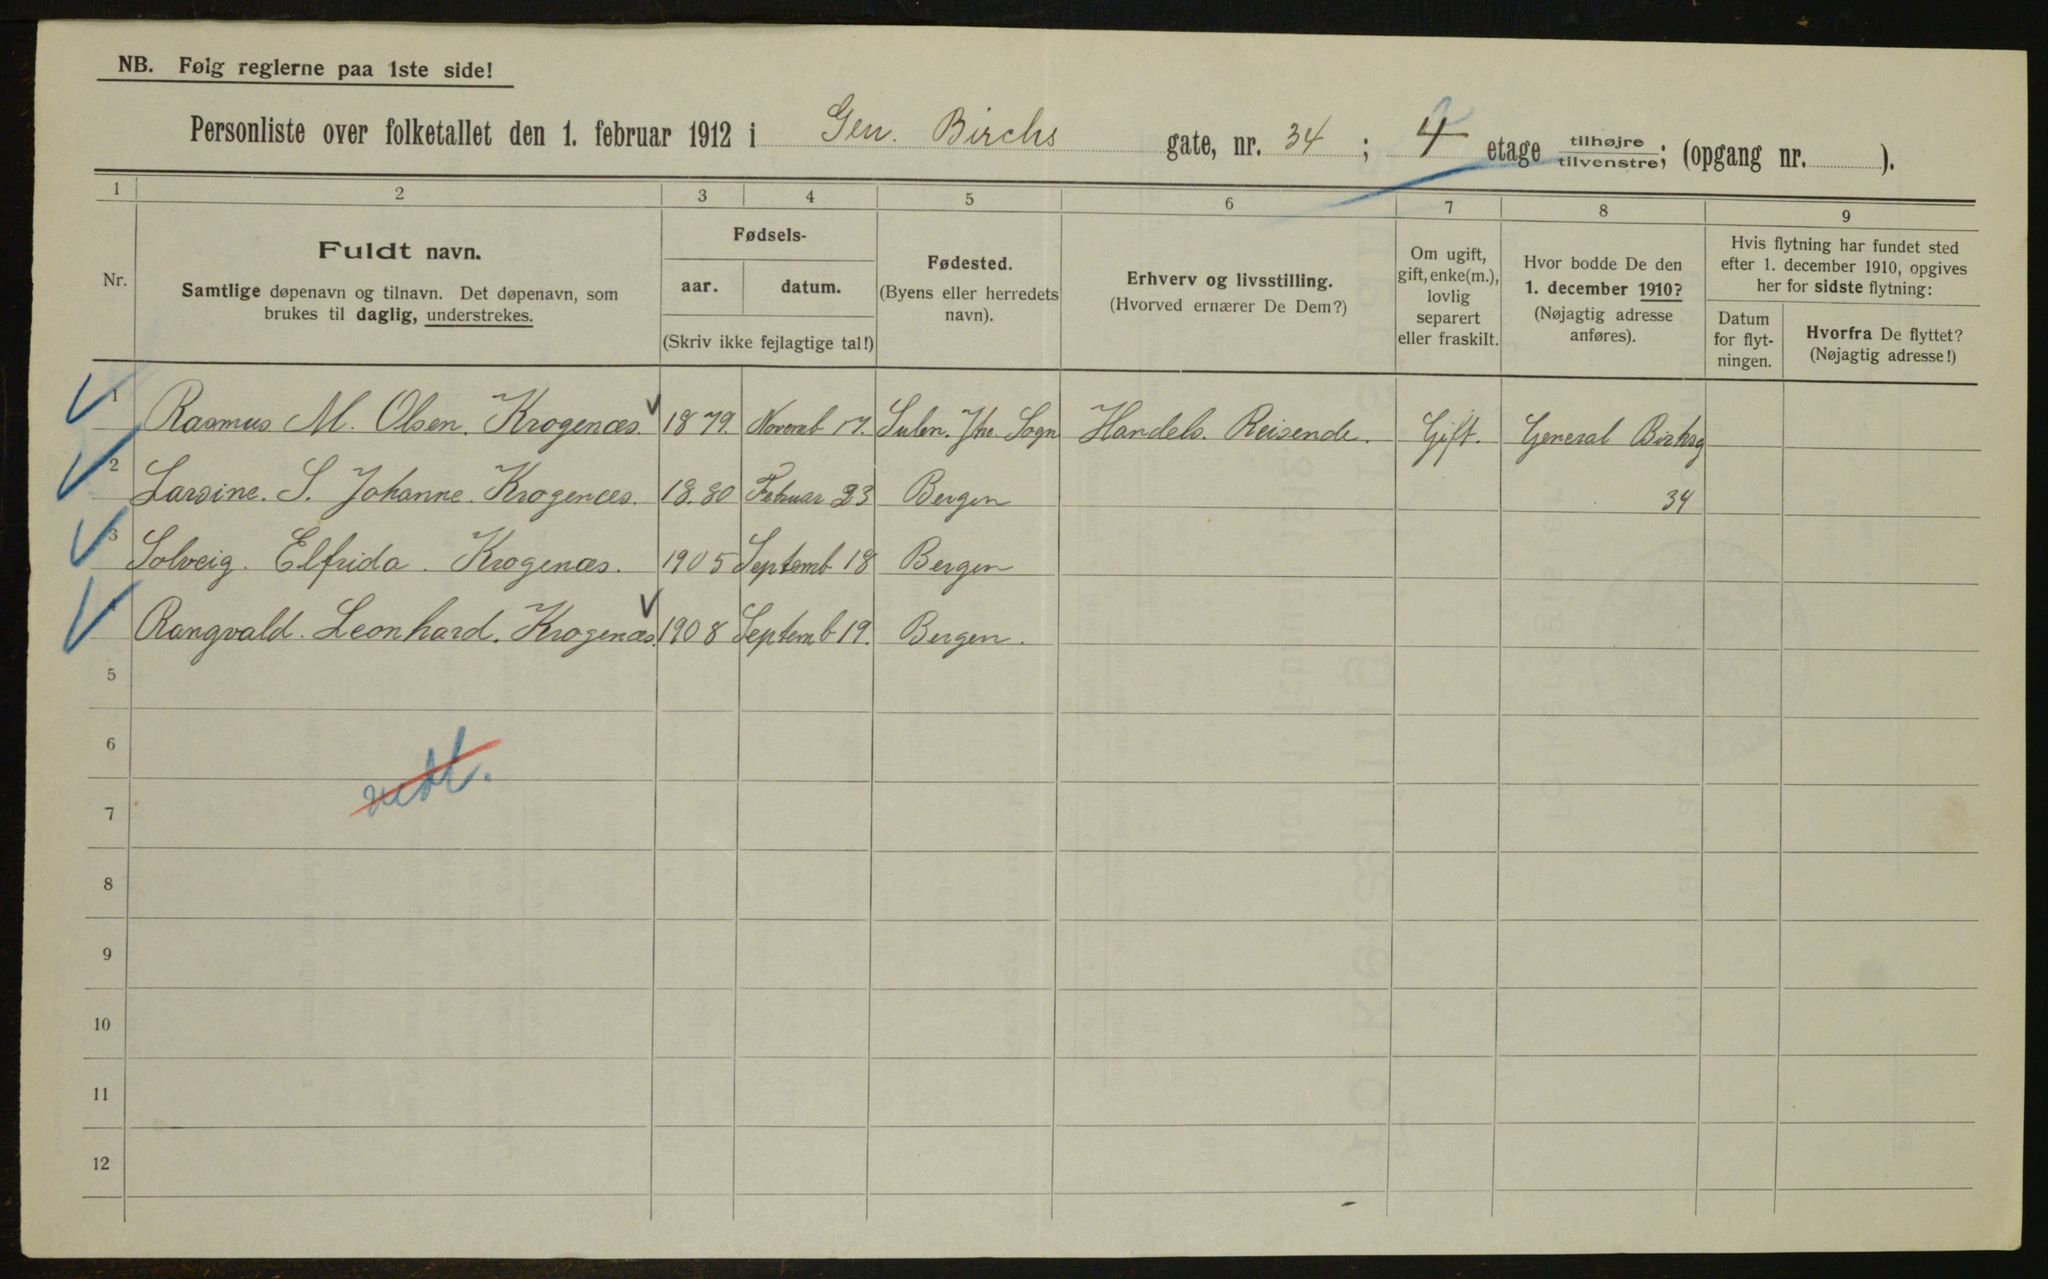 NB. Følg reglerne paa 1ste side!
Personliste over folketallet den 1. februar 1912 i Gen. Birchs gate, nr. 34; 4 etage tilhøjre/tilvenstre; (opgang nr. ).
1 2 3 4 5 6 7 8 9
Nr.
Fuldt navn.
Samtlige døpenavn og tilnavn. Det døpenavn, som
brukes til daglig, understrekes.
Fødsels-
aar. datum.
(Skriv ikke fejlagtige tal!)
Fødested.
(Byens eller herredets
navn).
Erhverv og livsstilling.
(Hvorved ernærer De Dem?)
Om ugift,
gift, enke(m.),
lovlig
separert
eller fraskilt.
Hvor bodde De den
1. december 1910?
(Nøjagtig adresse
anføres).
Hvis flytning har fundet sted
efter 1. december 1910, opgives
her for sidste flytning:
Datum
for flyt-
ningen.
Hvorfra De flyttet?
(Nøjagtig adresse!)
1 Rasmus M. Olsen. Krogenæs. 1879. Novemb 17. Sulen. Sogn Handels. Reisende. Gift. General Birksg
2 Larsine. S. Johanne. Krogenæs. 18.80 Februar 23 Bergen 34
3 Solveig. Elfrida. Krogenæs. 1905 Septemb 18 Bergen
4 Rangvald. Leonhard. Krogenæs. 1908 Septemb 19. Bergen.
5
6
7
8
9
10
11
12